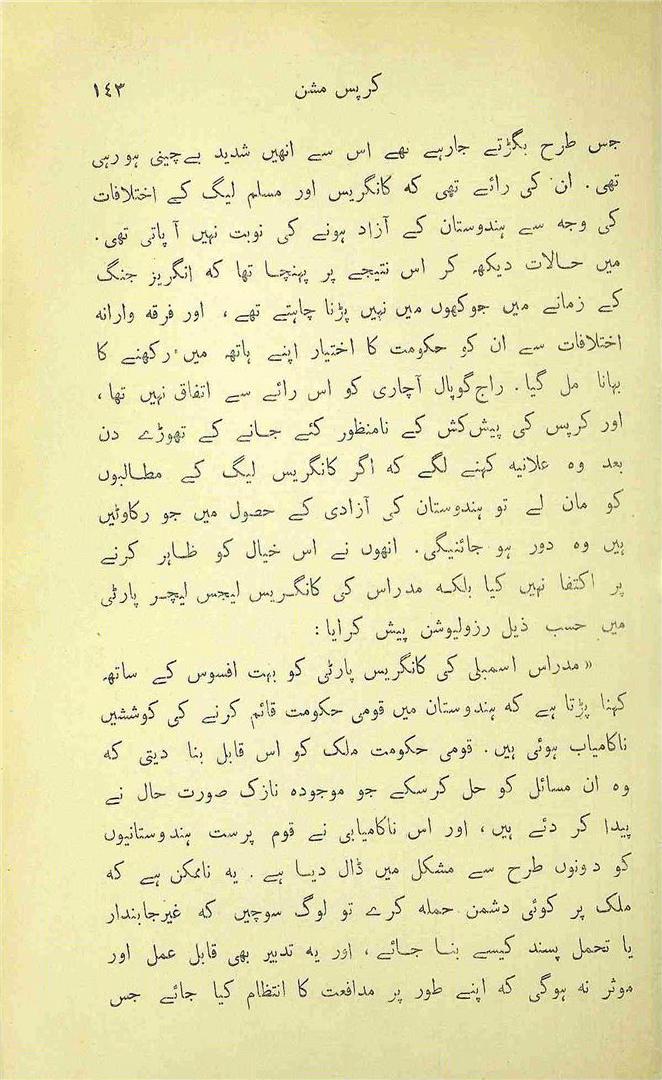 کرپس مشن ۱۴۳
جس طرح بگڑتے جارہے تھے اس سے انھیں شدید بے‌چینی ہورہی
تھی. ان کی رائے تھی که کانگریس اور مسلم لیگ کے اختلافات
کی وجه سے ہندوستان کے آزاد ہونے کی نوبت نہیں آ پاتی تھی.
میں حالات دیکھه کر اس نتیجے پر پہنچا تھا که انگریز جنگ
کے زمانے میں جوکھوں میں نہیں پڑنا چاہتے تھے، اور فرقه وارانه
اختلافات سے ان کو حکومت کا اختیار اپنے ہاتھ میں رکھنے کا
بہانا مل گیا. راج گوپال آچاری کو اس رائے سے اتفاق نہیں تھا،
اور کرپس کی پیش کش کے نامنظور کئے جانے کے تھوڑے دن
بعد وہ علانیه کہنے لگے که اگر کانگریس لیگ کے مطالبوں
کو مان لے تو ہندوستان کی آزادی کے حصول میں جو رکاوٹیں
ہیں وہ دور ہو جائنیگی. انھوں نے اس خیال کو ظاہر کرنے
پر اکتفا نہیں کیا بلکه مدراس کی کانگریس لیجس لیچر پارٹی
میں حسب ذیل رزولیوشن پیش کرایا:
« مدراس اسمبلی کی کانگریس پارٹی کو بہت افسوس کے ساتھ
کہنا پڑتا ہے که ہندوستان میں قومی حکومت قائم کرنے کی کوششیں
ناکامیاب ہوئی ہیں. قومی حکومت ملک کو اس قابل بنا دیتی که
وہ ان مسائل کو حل کرسکے جو موجودہ نازک صورت حال نے
پیدا کر دئے ہیں، اور اس ناکامیابی نے قوم پرست ہندوستانیوں
کو دونوں طرح سے مشکل میں ڈال دیا ہے. یه ناممکن ہے که
ملک پر کوئی دشمن حمله کرے تو لوگ سوچیں که غیرجابندار
یا تحمل پسند کیسے بنا جائے، اور یه تدبیر بھی قابل عمل اور
موثر نه ہوگی که اپنے طور پر مدافعت کا انتظام کیا جائے جس